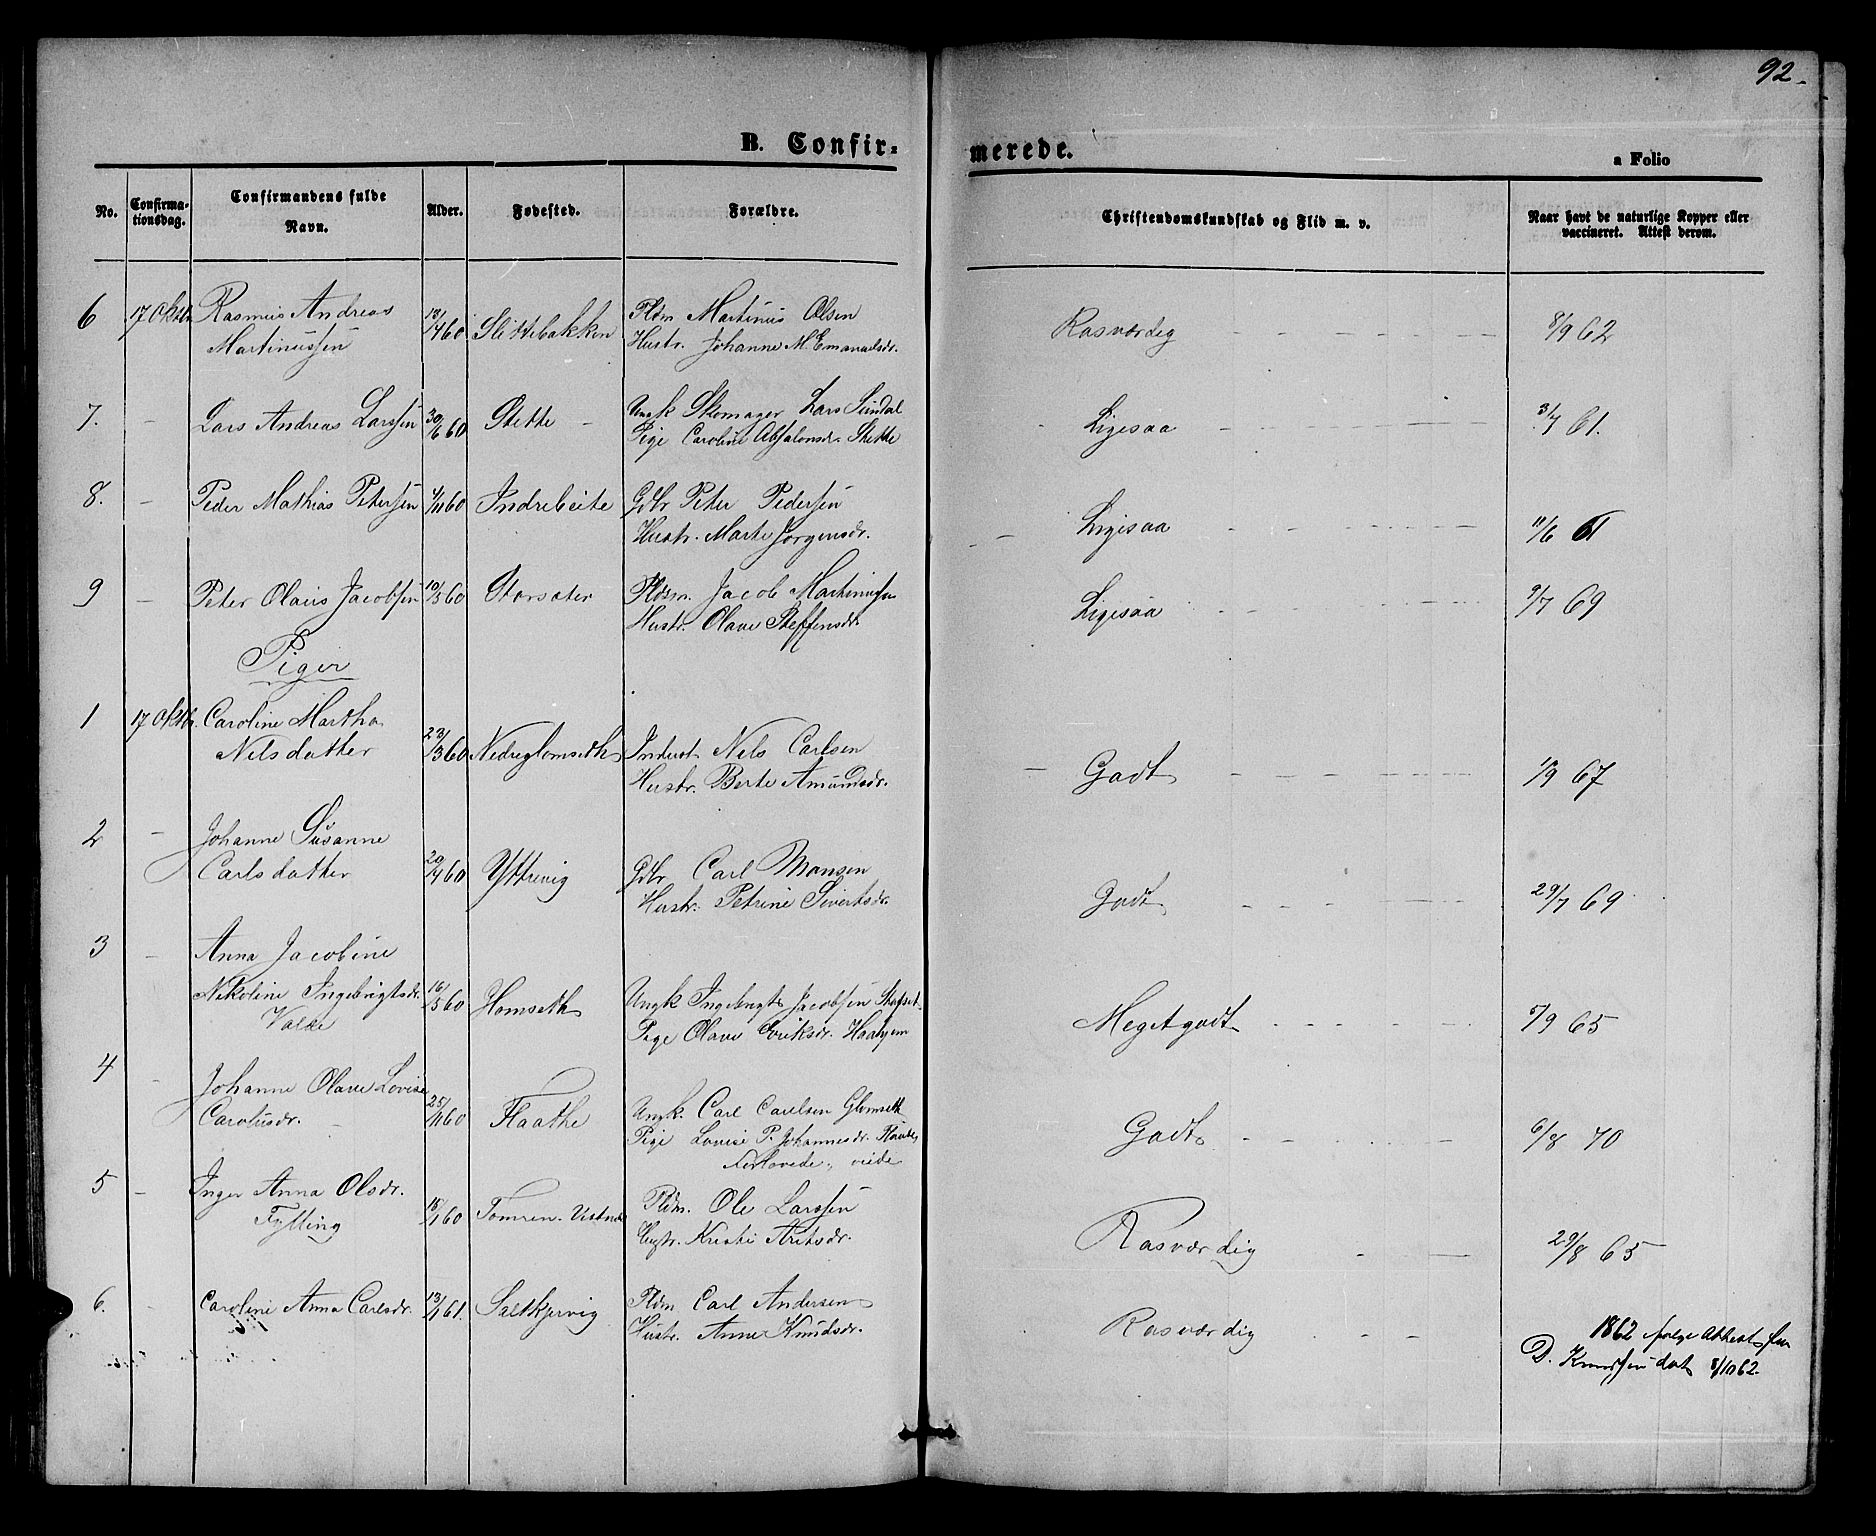 92.
B. Confir-
merede.
a Folio
No.
Confirma-
tionsdag.
Confirmandens fulde
Navn.
Alder.
Fødested.
Forældre.
Christendomskundskab og Flid m. v.
Naar havt de naturlige Kopper eller
vaccineret. Attest derom.
6 17 Oktbr Rasmus Andreas 18/4 60 Slettebakken Pldm Martinus Olsen Rasværdig 8/9 62
Martinussen Hustr. Johanne M. Emanuelsdr.
7. - Lars Andreas Larssen 30/6 60 Stette - Ungk Skomager Lars Sundal Ligesaa 3/7 61.
Pige Caroline Absalonsdr. Stette
8. - Peder Mathias Petersen 4/11 60 Indrebeite Gdbr Peter Pedersen Ligesaa 11/6 61
Hustr. Marte Jørgensdr.
9 - Peter Olaus Jacobsen 10/5 60 Storsæter Pldsm. Jacob Martinussen Ligesaa 9/7 69
Hustr. Olave Steffensdr.
Piger
1 17 Oktbr. Caroline Martha
Nelsdatter 23/3 60 Nedreglomseth Inderst Nels Carlsen Godt 1/9 67
Hustr. Berte Amundsdr.
2 - Johanne Susanne
Carlsdatter 20/4 60 Yttrevig Gdbr Carl Monsen Godt 29/7 69
Hustr. Petrine Sivertsdr.
3 - Anna Jacobine
Nikoline Ingebrigtsdr. 16/5 60 Homseth Ungk Ingebrigt Jacobsen Meget godt 5/9 65
Valde Pige Olave Eriksdr. Haahjem
4 - Johanne Olave Lovise
Carolusdr. 25/11 60 Flaathe Ungk. Carl Carlsen Glomseth Godt 6/8 70
Pige Lovise P. Johannesdr.
Forlovede, viede
5 - Inger Anna Olsdr. 15/1 60 Tomren. Pldm. Ole Larssen Rasværdig 29/8 65
Fylling Hustr. Kristi
6. - Caroline Anna Carlsdr. 13/1 61. Saltkjervig Pldm Carl Andersen Rasværdig 1862 følge Attest fra
Hustr. Anne Knudsdr. D. Knudsen dat 8/10 62.